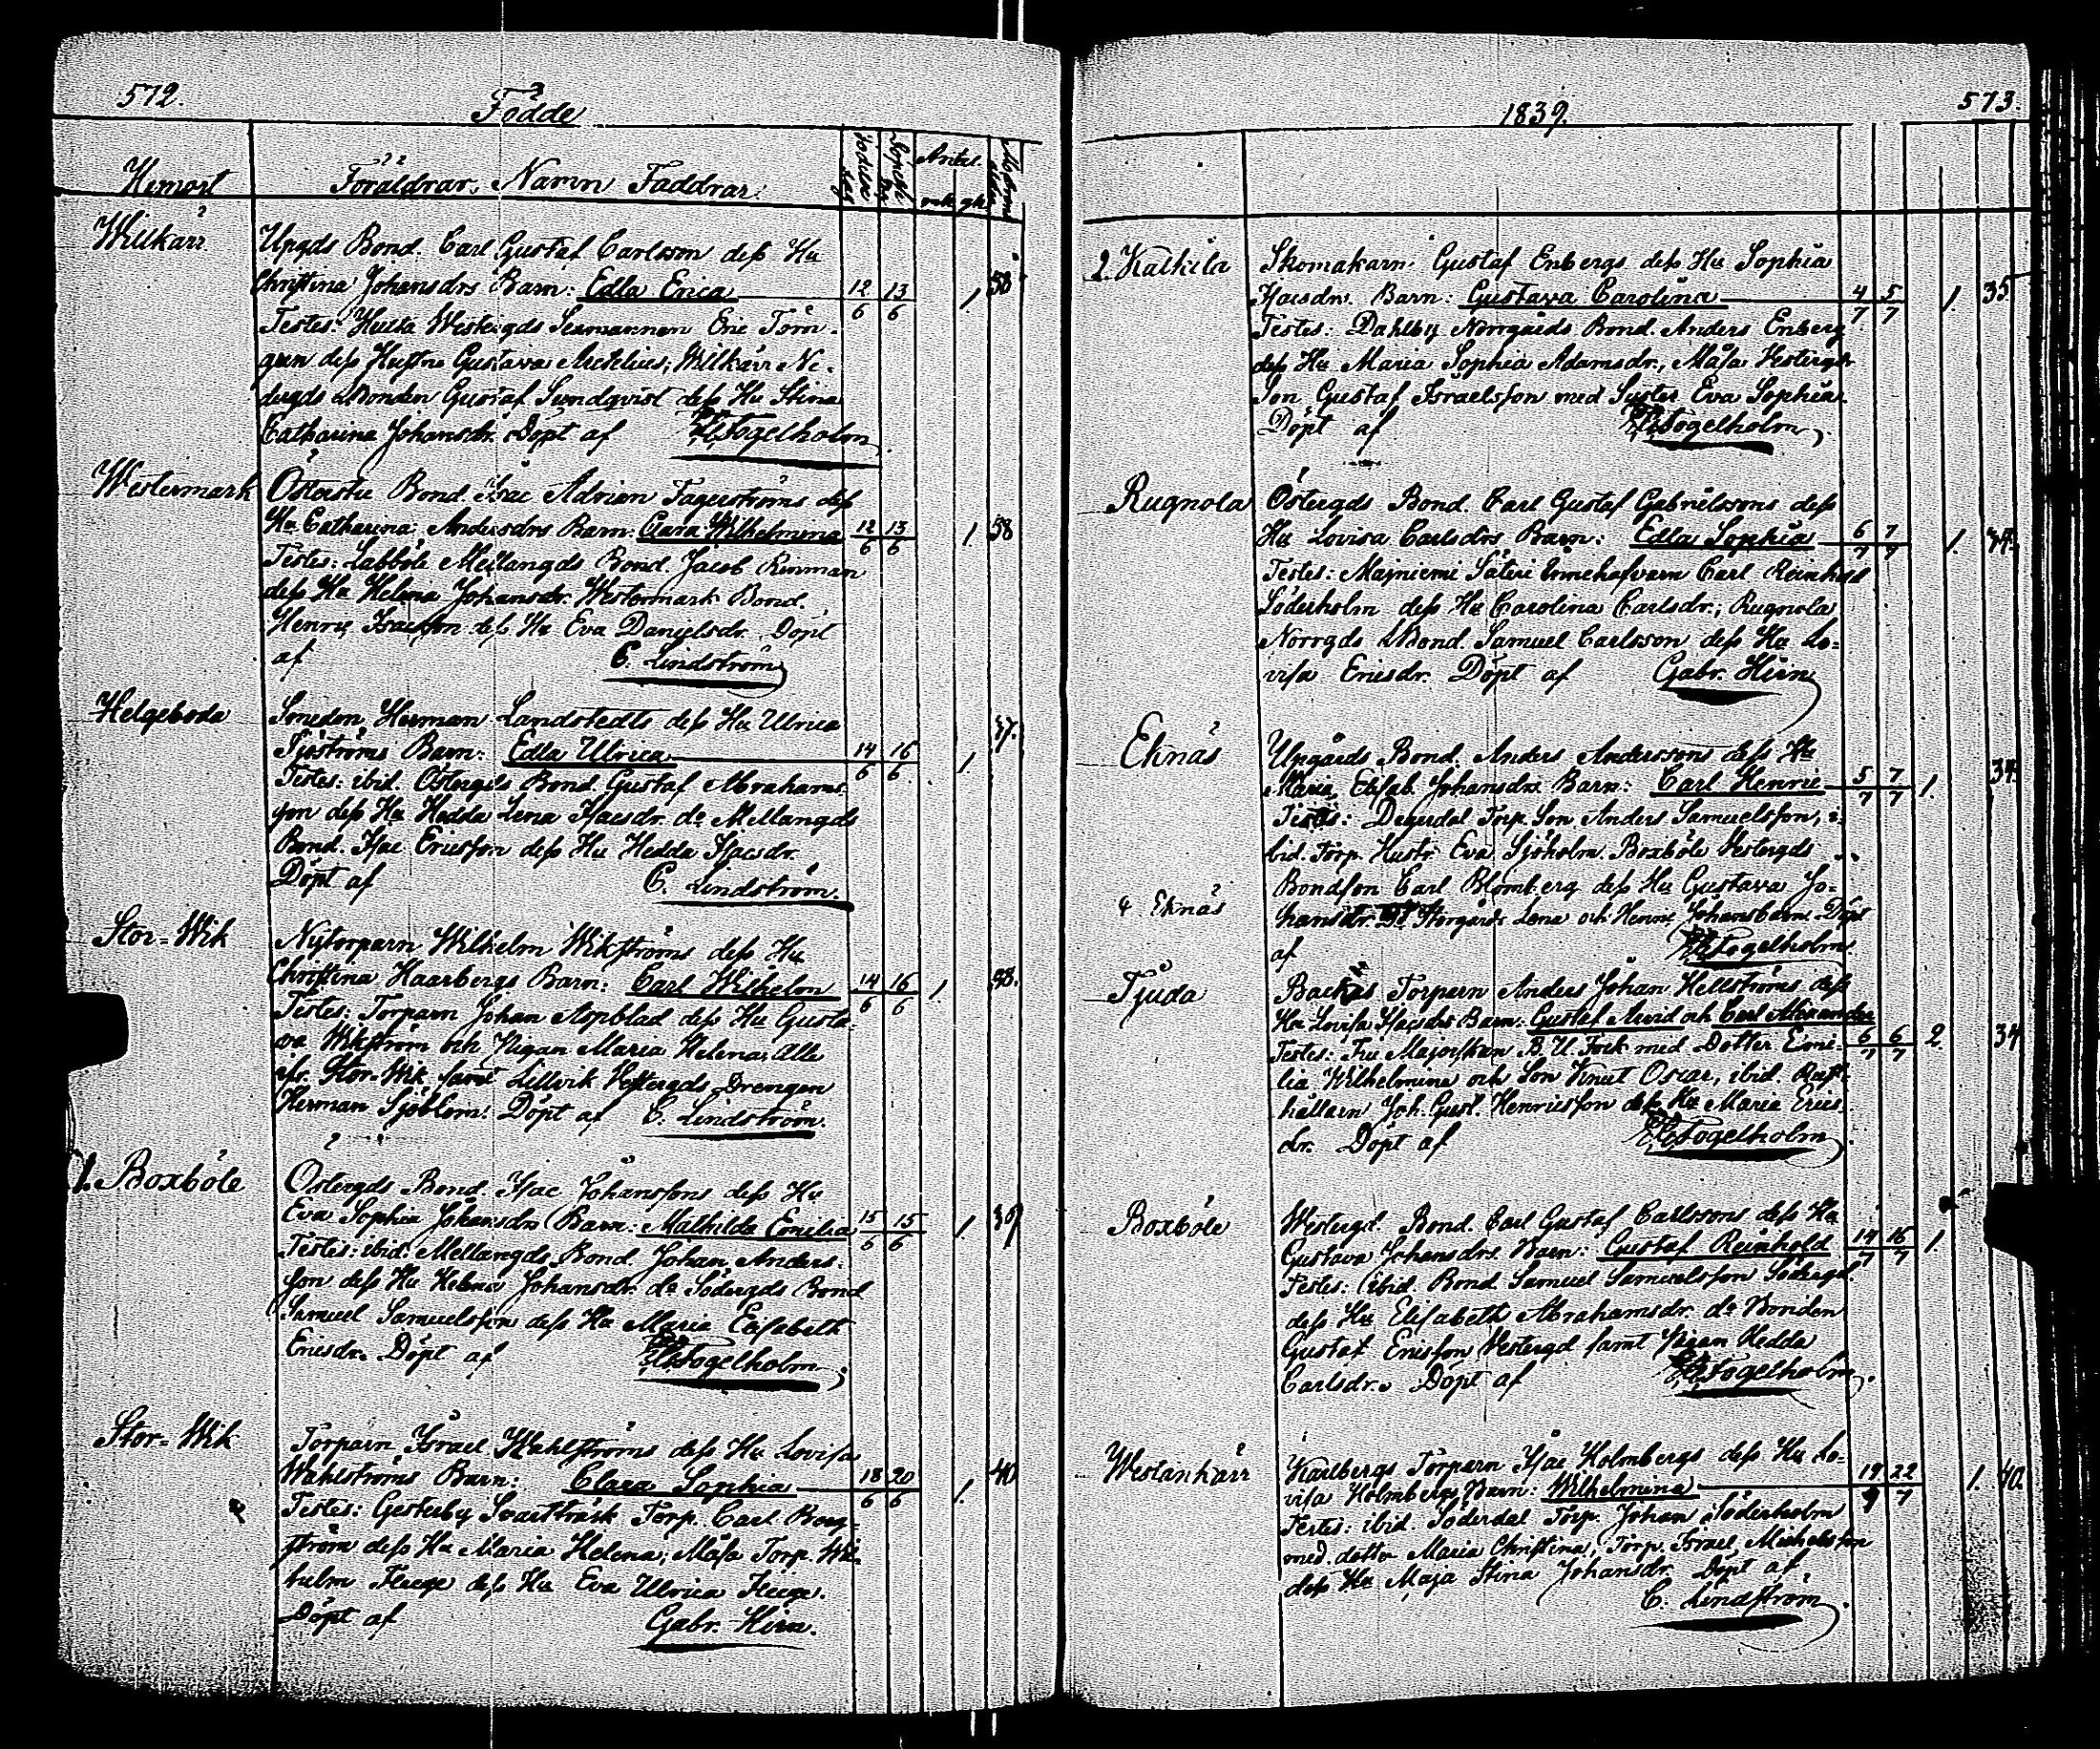 572.
Födde
Hemort
Föräldrar, Namn Faddrar.
Födelse dag
Döpelse dag
Antal.
mk. qk.
Modrens ålder
Willkärr
Upgds Bond. Carl Gustaf Carlsson dess Hu
Christina Johansdrs Barn: Edla Erica 12/6 13/6 1. 38
Testes: Westergds Eric Törn-
gren dess Hustru Gustava Wilkärr Ne-
dergds Bonden Gustaf Sundqvist dess Hu Stina
Catharina Johansdr. Döpt af Fogelholm
Westermark
Bond. Isac Adrian Fagerströms dess
Hu Catharina Andersdrs Barn: Clara Wilhelmina 12/6 13/6 1 38
Testes: Labböle Mellangds Bond. Jacob Rinman
dess Hu Helena Johansdr. Westermark Bond.
Henric Isacsson dess Hu Eva Danielsdr. Döpt
af C. Lindström
Helgeboda
Smeden Herman Landstedts dess Hu Ulrica
Sjöströms Barn: Edla Ulrica 14/6 16/6 1. 37.
Testes: ibid. Östergds Bond. Gustaf Abrahams-
son dess Hu Hedda Lena Isacsdr. do Mellangds
Bond. Isac Ericsson dess Hu Hedda Isacsdr.
Döpt af C. Lindström.
Stor-Wik
Nytorparn Wilhelm Wikströms dess Hu
Christina Haarbergs Barn: Carl Wilhelm 14/6 16/6 1. 38.
Testes: Torparn Johan Aspblad dess Hu Gusta-
va Wikström och Pigan Maria Helena, alla
ifr. Stor-Wik samt Lillvik Westergds Drengen
Herman Sjöblom. Döpt af C. Lindström.
1. Boxböle
Östergds Bond. Isac Johanssons dess Hu
Eva Sophia Johansdrs Barn: Mathilda Emilia 15/6 15/6 1. 39
Testes: ibid. Mellangds Bond. Johan Anders-
son dess Hu Helena Johansdr. do Södergds Bond
Samuel Samuelsson dess Hu Maria Elisabeth
Ericsdr. Döpt af Fogelholm.
Stor-Wik
Torparn Israel Wahlströms dess Hu Lovisa
Wahlströms Barn: Clara Sophia 18/6 20/6 1. 40
Testes: Gesterby Svartträsk Torp. Carl Berg-
ström dess Hu Maria Helena; Måsa Torp. Wil-
helm Flege dess Hu Eva Ulrica Flege.
Döpt af Gabr. Hirn.
1839.
573.
2. Kalkila
Skomakarn Gustaf Enbergs dess Hu Sophia
Isacsdrs. Barn: Gustava Carolina 4/7 5/7 1. 35
Testes: Dahlby Norrgårds Bond. Anders Enberg
dess Hu Maria Sophia Adamsdr., Måsa Vestergds
Son Gustaf Israelsson med Syster Eva Sophia.
Döpt af Fogelholm.
Rugnola
Östergds Bond. Carl Gustaf Gabrielssons dess
Hu Lovisa Carlsdrs Barn: Edla Sophia 6/7 7/7 1.
Testes: Majniemi Säteri Innehafvarn Carl Reinhold
Söderholm dess Hu Carolina Carlsdr.; Rugnola
Norrgds Bond. Samuel Carlsson dess Hu Lo-
visa Ericsdr. Döpt af Gabr. Hirn
Eknäs
Upgårds Bond. Anders Anderssons dess Hu
Maria Elisab. Johansdrs. Barn: Carl Henric 5/7 7/7 1. 34
Testes: Degerdal Torp. Son Anders Samuelsson, i-
bid. Torp. Hustr. Eva Sjöholm. Boxböle Vestergds
Bondson Carl Blomberg dess Hu Gustava Jo-
hansdr. Storgårds Lena och Henric Johansbarn Döpt
af Fogelholm.
& Eknäs
Tjuda
Backas Torparn Anders Johan Hellströms dess
Hu Lovisa Isacsdrs Barn: Gustaf Arvid och Carl Alexander
6/7 6/7 2. 34
Testes: Fru Majorskan B. U. Fock med Dotter Emi-
lia Wilhelmina och Son Knut Oscar, ibid. Rust-
hållarn Joh. Gust. Henricsson dess Hu Maria Erics-
dr. Döpt af Fogelholm
Boxböle
Westergd. Bond. Carl Gustaf Carlssons dess Hu
Gustava Johansdrs. Barn: Gustaf Reinhold 14/7 16/7 1.
Testes: ibid. Bond. Samuel Samuelsson Södergd.
dess Hu Elisabeth Abrahamsdr. do Bonden
Gustaf Ericsson Vestergd samt Pigan Hedda
Carlsdr. Döpt af Fogelholm.
Westankärr
Karlbergs Torparn Isac Holmbergs dess Hu Lo-
visa Holmbergs Barn: Wilhelmina 19/7 22/7 1. 40.
Testes: ibid. Söderdal Torp. Johan Söderholm
med dotter Maria Christina, Torp. Israel Michelsson
dess Hu Maja Stina Johansdr. Döpt af
C. Lindström.